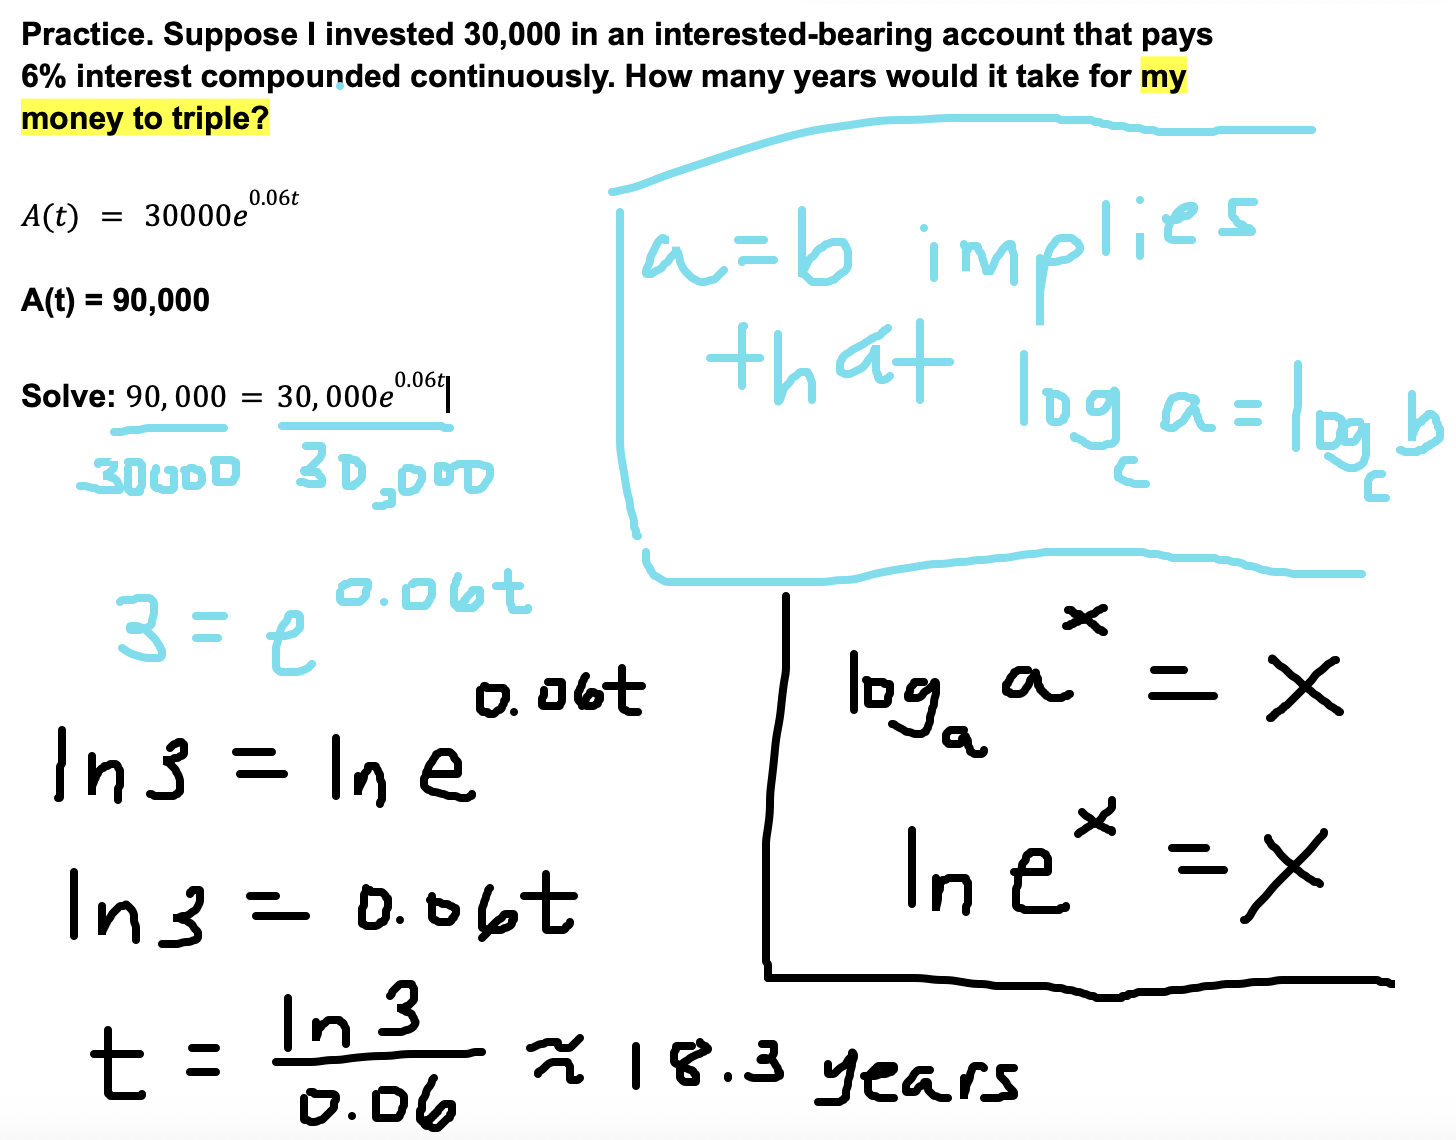 Practice. Suppose I invested 30,000 in an interested-bearing account that pays
6% interest compounded continuously. How many years would it take for my
money to triple?
A(t) = 30000e^0.06t
A(t) = 90,000
Solve: 90,000 = 30,000e^0.06t
30000 30,000
3 = e^0.06t
ln 3 = ln e^0.06t
ln 3 = 0.06t
t = ln 3 / 0.06 ≈ 18.3 years
a = b implies
that log_c a = log_c b
log_a a^x = x
ln e^x = x